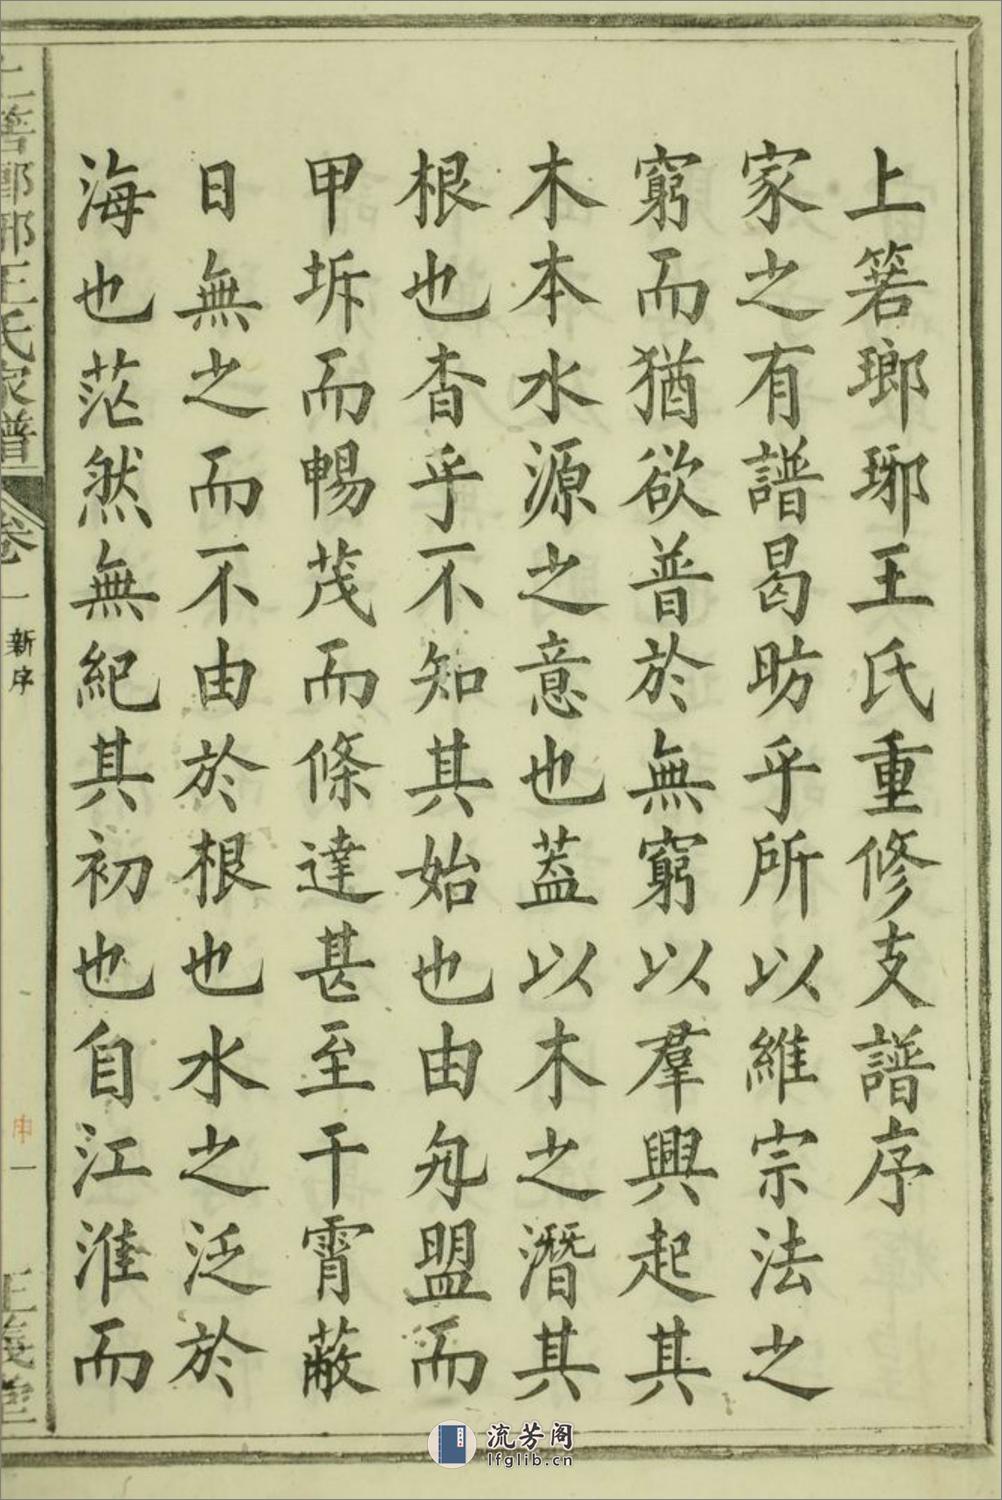 上箬瑯琊王氏重修支譜序
家之有譜曷昉乎所以維宗法之
窮而猶欲普於無窮以羣興起其
木本水源之意也葢以木之潛其
根也杳乎不知其始也由勾盟而
甲坼而暢茂而條達甚至干霄蔽
日無之而不由於根也水之泛於
海也茫然無紀其初也自江淮而
上箬瑯琊王氏家譜
卷一
新序
一
三義堂
流芳阁
lfglib.cn